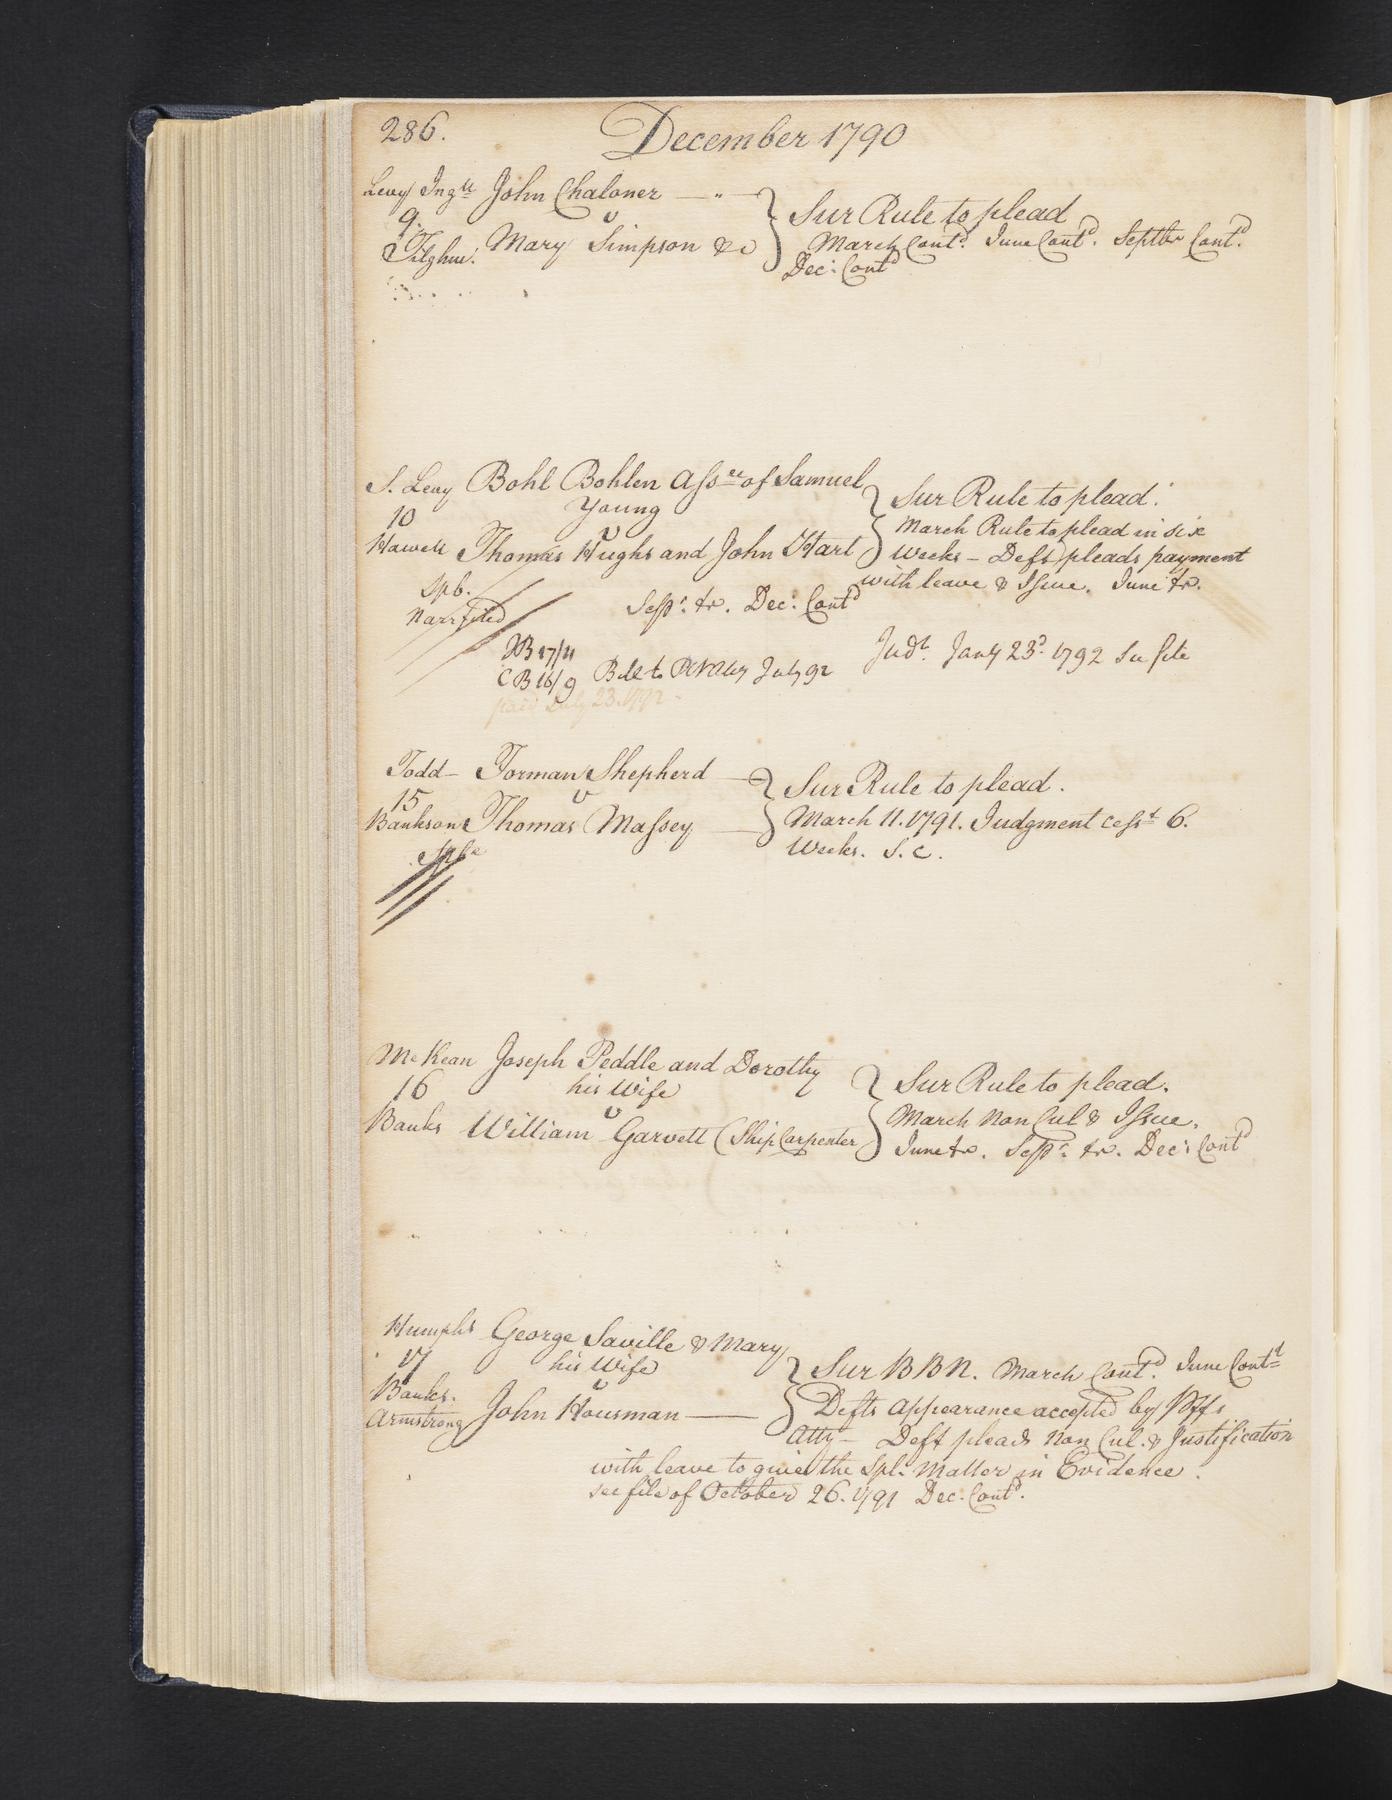 286. December 1790
Levy Ingll John Chaloner — " — Sur Rule to plead
9. v
Tilghm. Mary Simpson &c March Contd. June Contd. Septbr Contd.
Dec: Contd
S. Levy Bohl Bohlen Assee of Samuel Sur Rule to plead.
10 Young
v March Rule to plead in six
Howell Thomas Hughs and John Hart Weeks – Deft pleads payment
Spb. with leave & Issue. June tr.
Narr filed Sepr. tr. Dec: Contd
Judt. Jany 23d. 1792 See file
CB 16/9 Bill to July 92
paid July 23. 1792 -
Todd – Forman Shepherd — Sur Rule to plead.
15 v
Bankson Thomas Massey — March 11. 1791. Judgment cesst 6.
Weeks. S. C.
McKean Joseph Peddle and Dorothy Sur Rule to plead.
16 his Wife
v March Non Cul & Issue.
Banks William Garvett (Ship Carpenter June tr. Sepr. tr. Dec: Contd
Humphs George Saville & Mary
17 his Wife Sur BBN. March Contd. June Contd
Banks. v
Armstrong John Housman — Defts appearance accepted by Plffs
Atty – Deft pleads Non Cul. & Justification
with leave to give the Spl. Matter in Evidence.
see file of October 26. 1791 Dec. Contd.